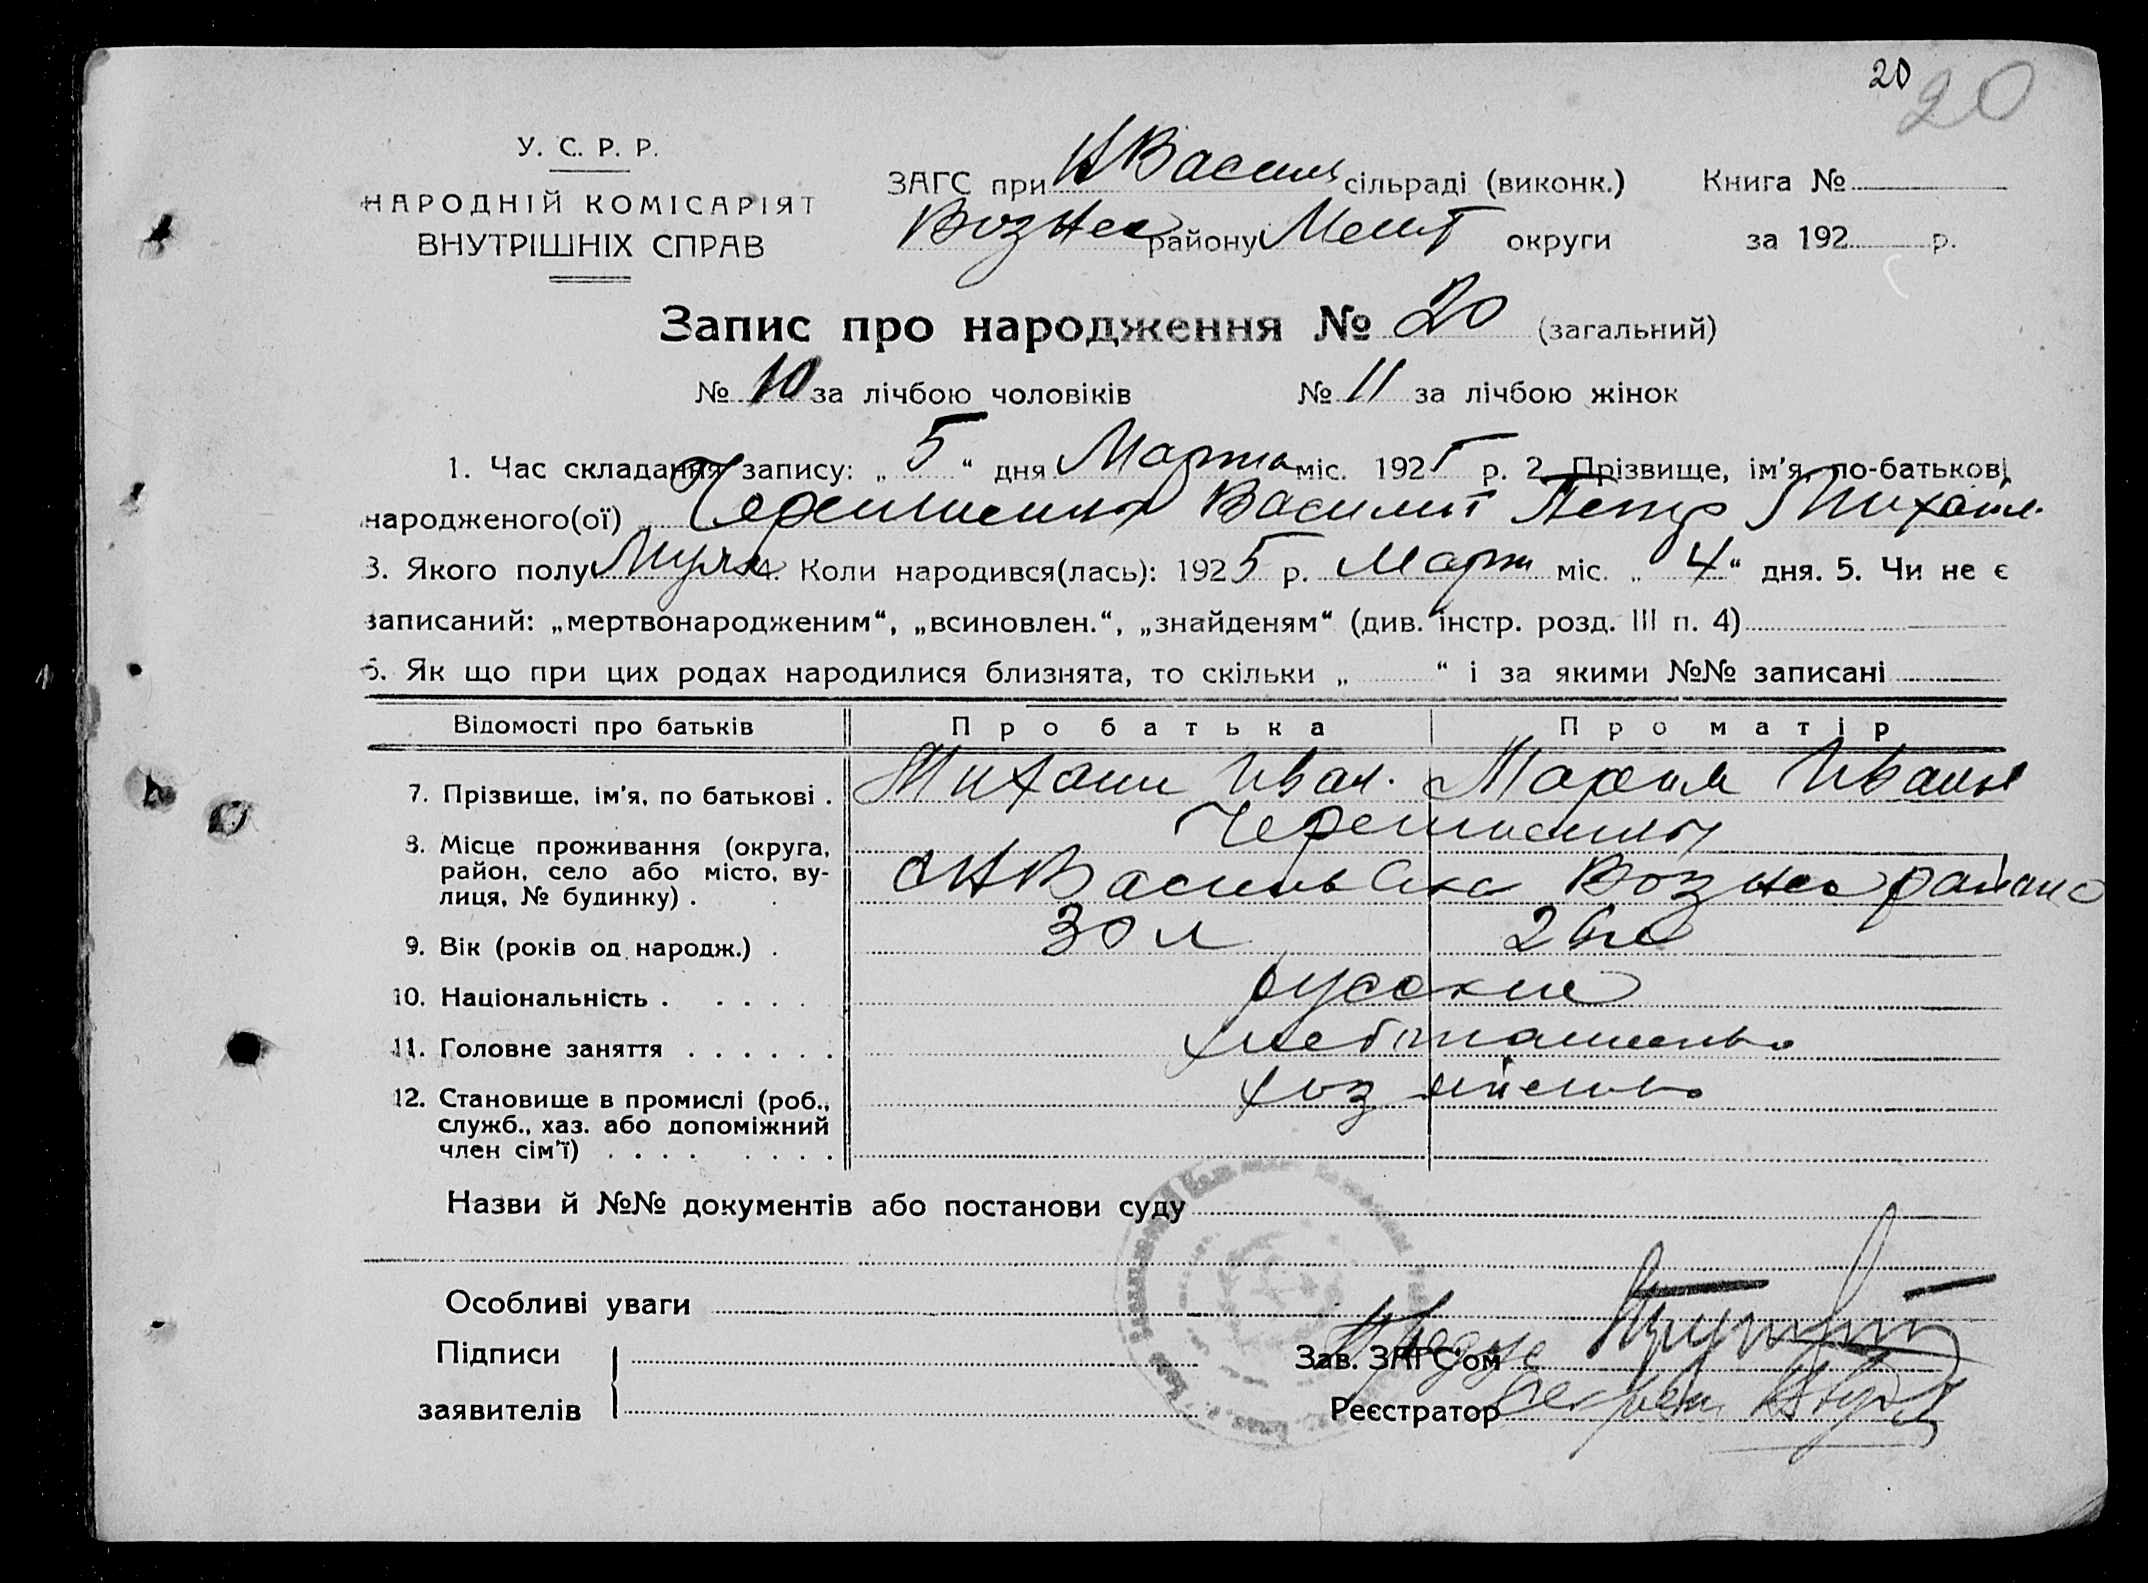 20 20
У. С. Р. Р.
НАРОДНІЙ КОМІСАРІЯТ
ВНУТРІШНІХ СПРАВ
ЗАГС при НВасиль сільраді (виконк.) Книга №
Вознес району Мелит округи за 192 р.
Запис про народження № 20 (загальний)
№ 10 за лічбою чоловіків № 11 за лічбою жінок
1. Час складання запису: „ 5 “ дня Марта міс. 1925 р. 2. Прізвище, ім’я, по-батькові
народженого(ої) Василий Петр Михайл.
3. Якого полу Муж 4. Коли народився(лась): 1925 р. Март міс. „ 4 “ дня. 5. Чи не є
записаний: „мертвонародженим“, „всиновлен.“, „знайденям“ (див. інстр. розд. III п. 4)
6. Як що при цих родах народилися близнята, то скільки „ “ і за якими №№ записані
Відомості про батьків Про батька Про матір
7. Прізвище, ім’я, по батькові . Михаил Иван. Мария Иванов
8. Місце проживання (округа,
район, село або місто, ву-
лиця, № будинку) . НВасильевка Вознес района
9. Вік (років од народж.) . 30 л
10. Національність . . . . . русские
11. Головне заняття . . . . . . хлебопашество
12. Становище в промислі (роб., хозяйство
служб., хаз. або допоміжний
член сім’ї) . . . . . . . .
Назви й №№ документів або постанови суду
Особливі уваги
Підписи
заявителів
Зав. ЗАГС’ом
Реєстратор Секрет